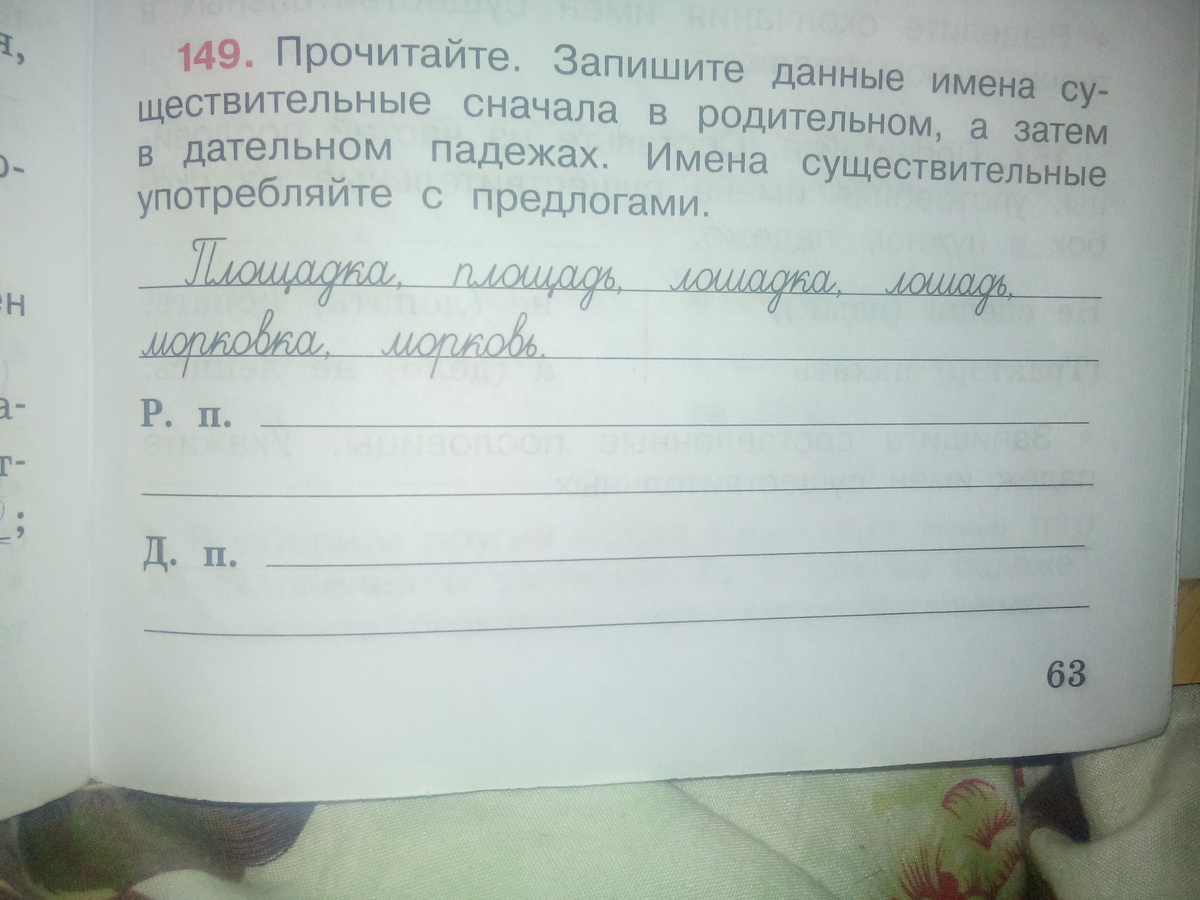 149. Прочитайте. Запишите данные имена су-
ществительные сначала в родительном, а затем
в дательном падежах. Имена существительные
употребляйте с предлогами.
Площадка, площадь, лошадка, лошадь,
морковка, морковь.
Р. п.
Д. п.
63
я,
о-
ен
а-
т-
;